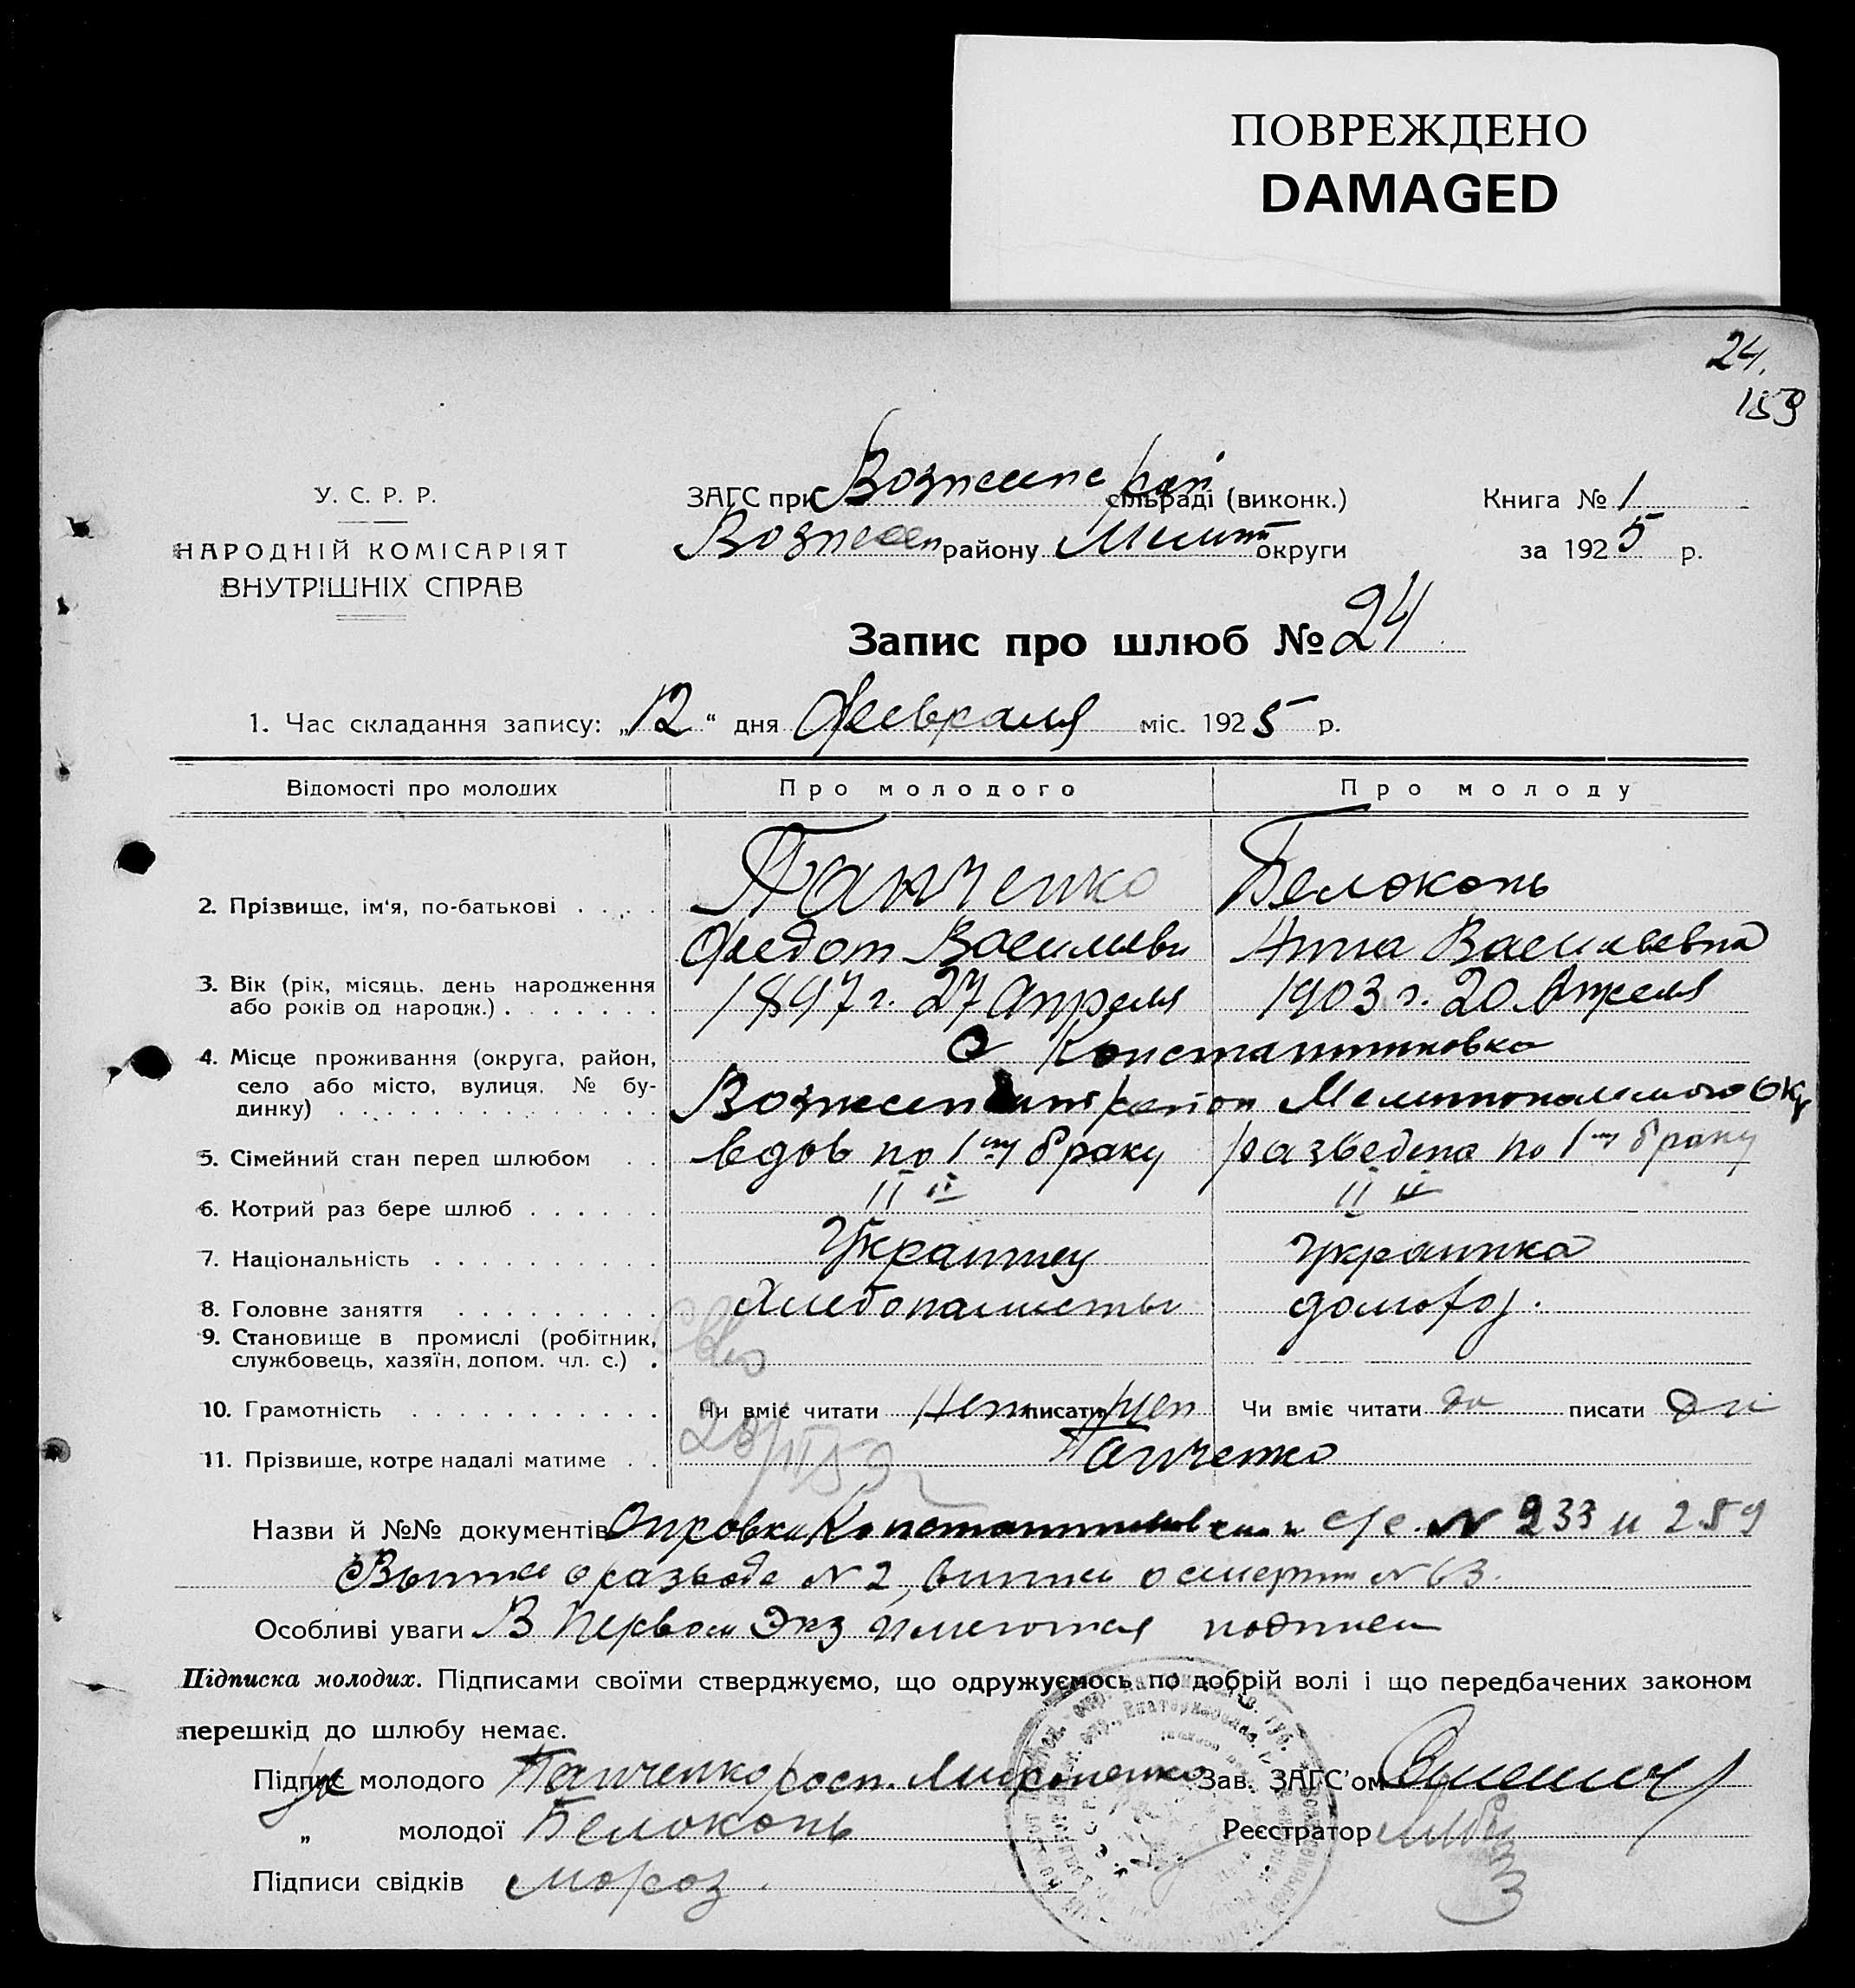 ПОВРЕЖДЕНО
DAMAGED
24.
153
У. С. Р. Р.
НАРОДНІЙ КОМІСАРІЯТ
ВНУТРІШНІХ СПРАВ
ЗАГС при Вознесенс рай сільраді (виконк.)
Вознесен району Мелит округи
Книга № 1
за 1925 р.
Запис про шлюб № 24
1. Час складання запису: „12“ дня Февраля міс. 1925 р.
Відомості про молодих Про молодого Про молоду
2. Прізвище, ім'я, по-батькові Панченко Белоконь
Федот Васильеви Анна Васильевна
3. Вік (рік, місяць, день народження або років од народж.) 1897 г. 27 Апреля 1903 г. 20 Апреля
4. Місце проживання (округа, район, село або місто, вулиця, № будинку) С Константиновка
район Мелитопольского Окр
5. Сімейний стан перед шлюбом вдов по 1му браку разведена по 1му браку
6. Котрий раз бере шлюб II й II й
7. Національність Украинец украинка
8. Головне заняття Хлебопашество домохоз.
9. Становище в промислі (робітник, службовець, хазяїн, допом. чл. с.)
10. Грамотність Чи вміє читати Нет писати Нет Чи вміє читати да писати да
11. Прізвище, котре надалі матиме Панченко
Назви й №№ документів Справки Константиновского с/с. N 233 и 259
о разводе N 2, о смерти N 63.
Особливі уваги В первом Экз имеются подписи
Підписка молодих. Підписами своїми стверджуємо, що одружуємось по добрій волі і що передбачених законом
перешкід до шлюбу немає.
Підпис молодого Панченко расп. Мироненко Зав. ЗАГС'ом
„ молодої Белоконь Реєстратор
Підписи свідків Мороз